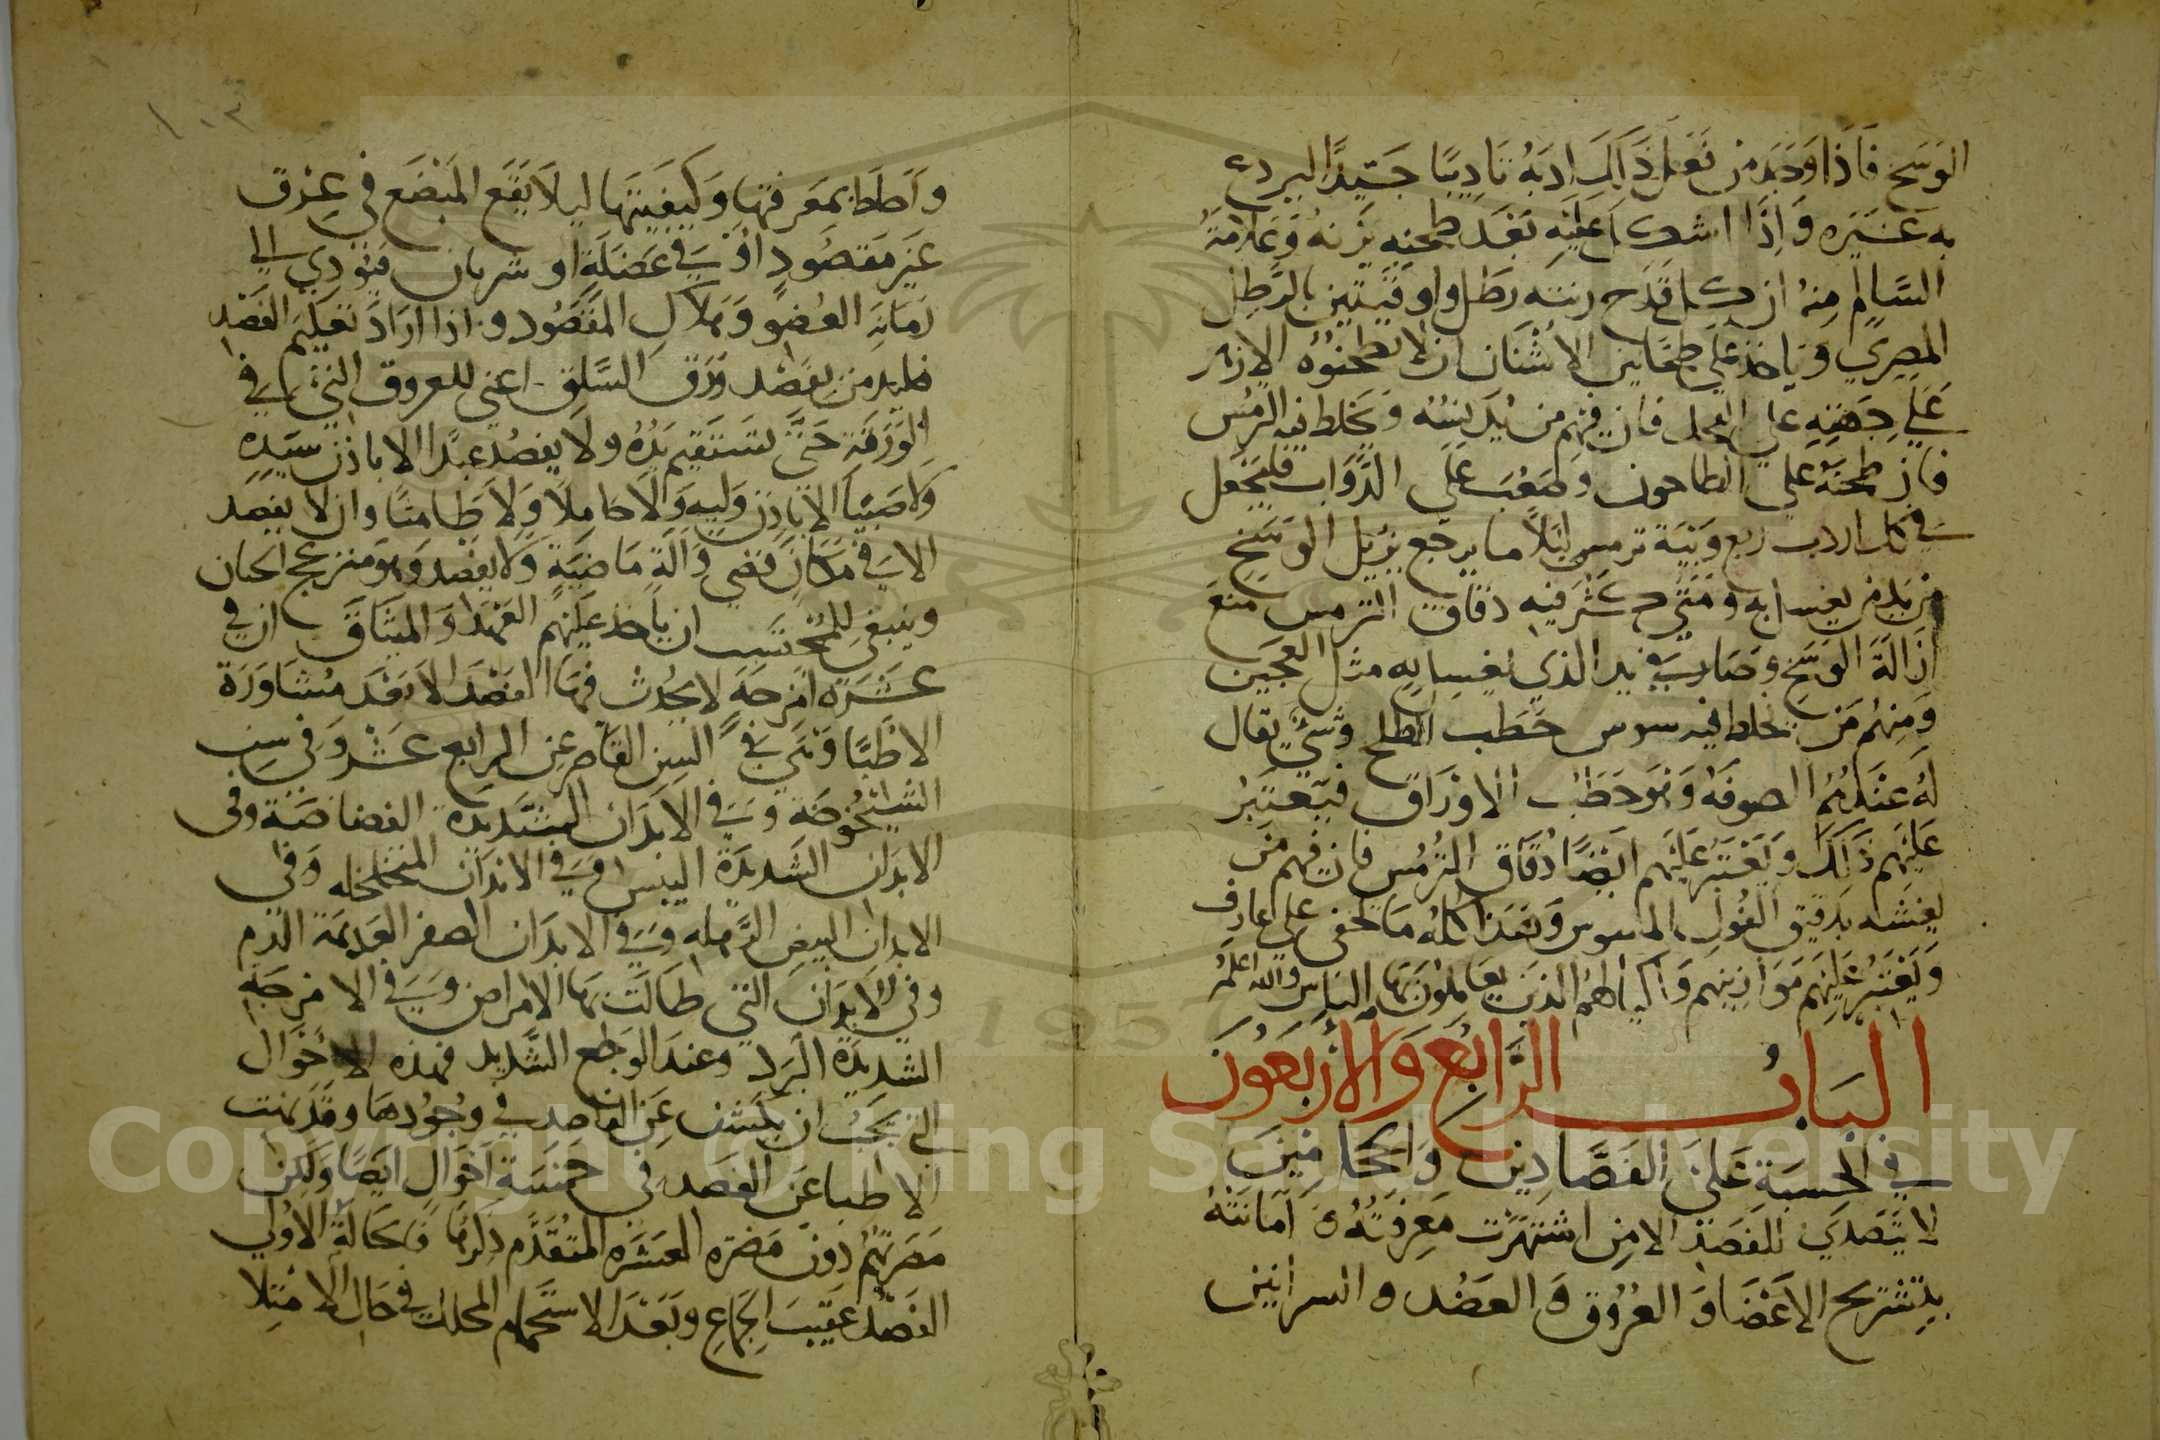 الوسخ فاذا وجد من فعل ذالك ادبه تاديبا جيدا ليردع
به غيره واذا اشكل عليه بعد طحنه يزنه وعلامة
السالم منه ان كل قدح زنته رطل واوقيتين بالرطل
المصري وياخذ على طحانين الاشنان ان لا يطحنوه الا
على جهته فان فيهم من ويخلط فيه الترمس
فان طحنه على الطاحون وصعب على الدواب فليجعل
في كل اردب ربع ويبة ترمس ليلا ما يرجع يزيل الوسخ
من يد من يغسل به ومتي كثر فيه دقاق الترمس منع
ازالة الوسخ وصار في يد الذي يغسل به مثل العجين
ومنهم من يخلط فيه سوس حطب الطلح وشي يقال
له عندهم الصوفه وهو حطب الاوراق فيعتبر
عليهم ذلك ويعتبر عليهم ايضا دقاق الترمس فان فيهم من
يغشه بدقيق الفول المسوس وبعد هذا كله ما يخفى على العارف
ويعتبر عليهم موازينهم واكيالهم الذين يعاملون بها الناس والله اعلم
الباب الرابع والاربعون
في الحسبة على الفصادين والحجامين
لا يتصدى للفصد الا من اشتهرت معرفته وامانته
بتشريح الاعضا والعروق والعضد والشرايين
١٠٣
واحاط بمعرفتها وكيفيتها ليلا يقع المبضع في عرق
غير مقصود او في عضلة او شريان فيؤدي الى
زمانة العضو وهلاك المفصود واذا اراد تعليم الفصد
فليدمن بفصد ورق السلق اعني للعروق التي في
الورقة حتى تستقيم يده ولا يفصد عبدا الا باذن سيده
ولا صبيا الا باذن وليه ولا حاملا ولا طامثا وان لا يفصد
الا في مكان مضي وآلة ماضية ولا يفصد وهو منزعج الجنان
وينبغي للمحتسب ان ياخذ عليهم العهد والميثاق ان في
عشرة امزجة لا يحدث فيها الفصد الا بعد مشاورة
الاطبا وهي في السن القاصر عن الرابع عشر وفي سن
الشيخوخة وفي الابدان الشديدة القضافة وفي
الابدان الشديدة اليبس وفي الابدان المتخلخله وفي
الابدان البيض الترهله وفي الابدان الصفر العديمة الدم
وفي الابدان التي طالت بها الامراض وفي الامزجة
الشديدة البرد وعند الوجع الشديد فهذه الاحوال
التي يجب ان يكشف عن الفاصد في وجودها وقد نهت
الاطبا عن الفصد في خمسة احوال ايضا ولكن
مضرتهم دون مضرة العشرة المتقدم ذكرها فالحالة الاولي
الفصد عقيب الجماع وبعد الاستحمام المحلل في حال الامتلا